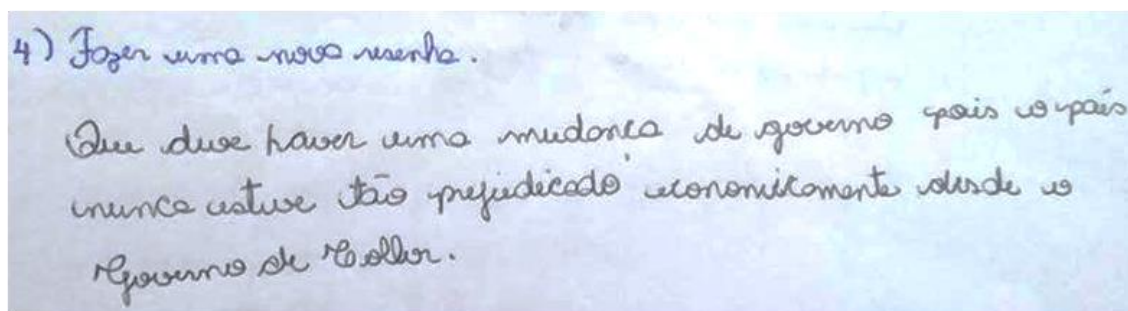 4) Fazer uma nova resenha.
Que deve haver uma mudança de governo pois o país
nunca esteve tão prejudicado economicamente desde o
Governo de Collor.